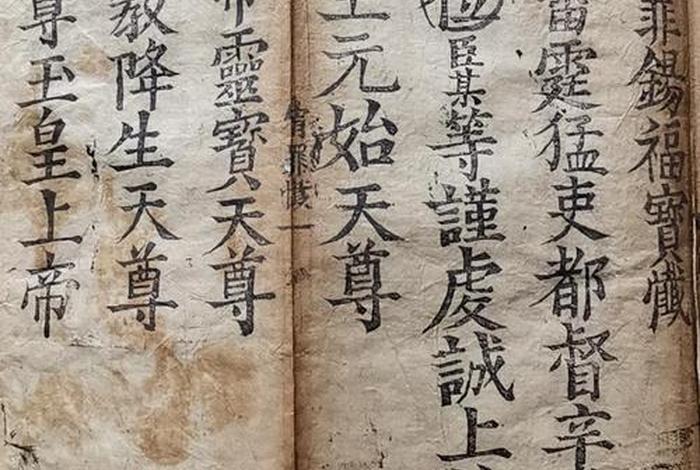 罪錫福寶懺
雷霆猛吏都督辛
臣某等謹虔誠上
元始天尊
宥罪懺一
靈寶天尊
教降生天尊
尊玉皇上帝